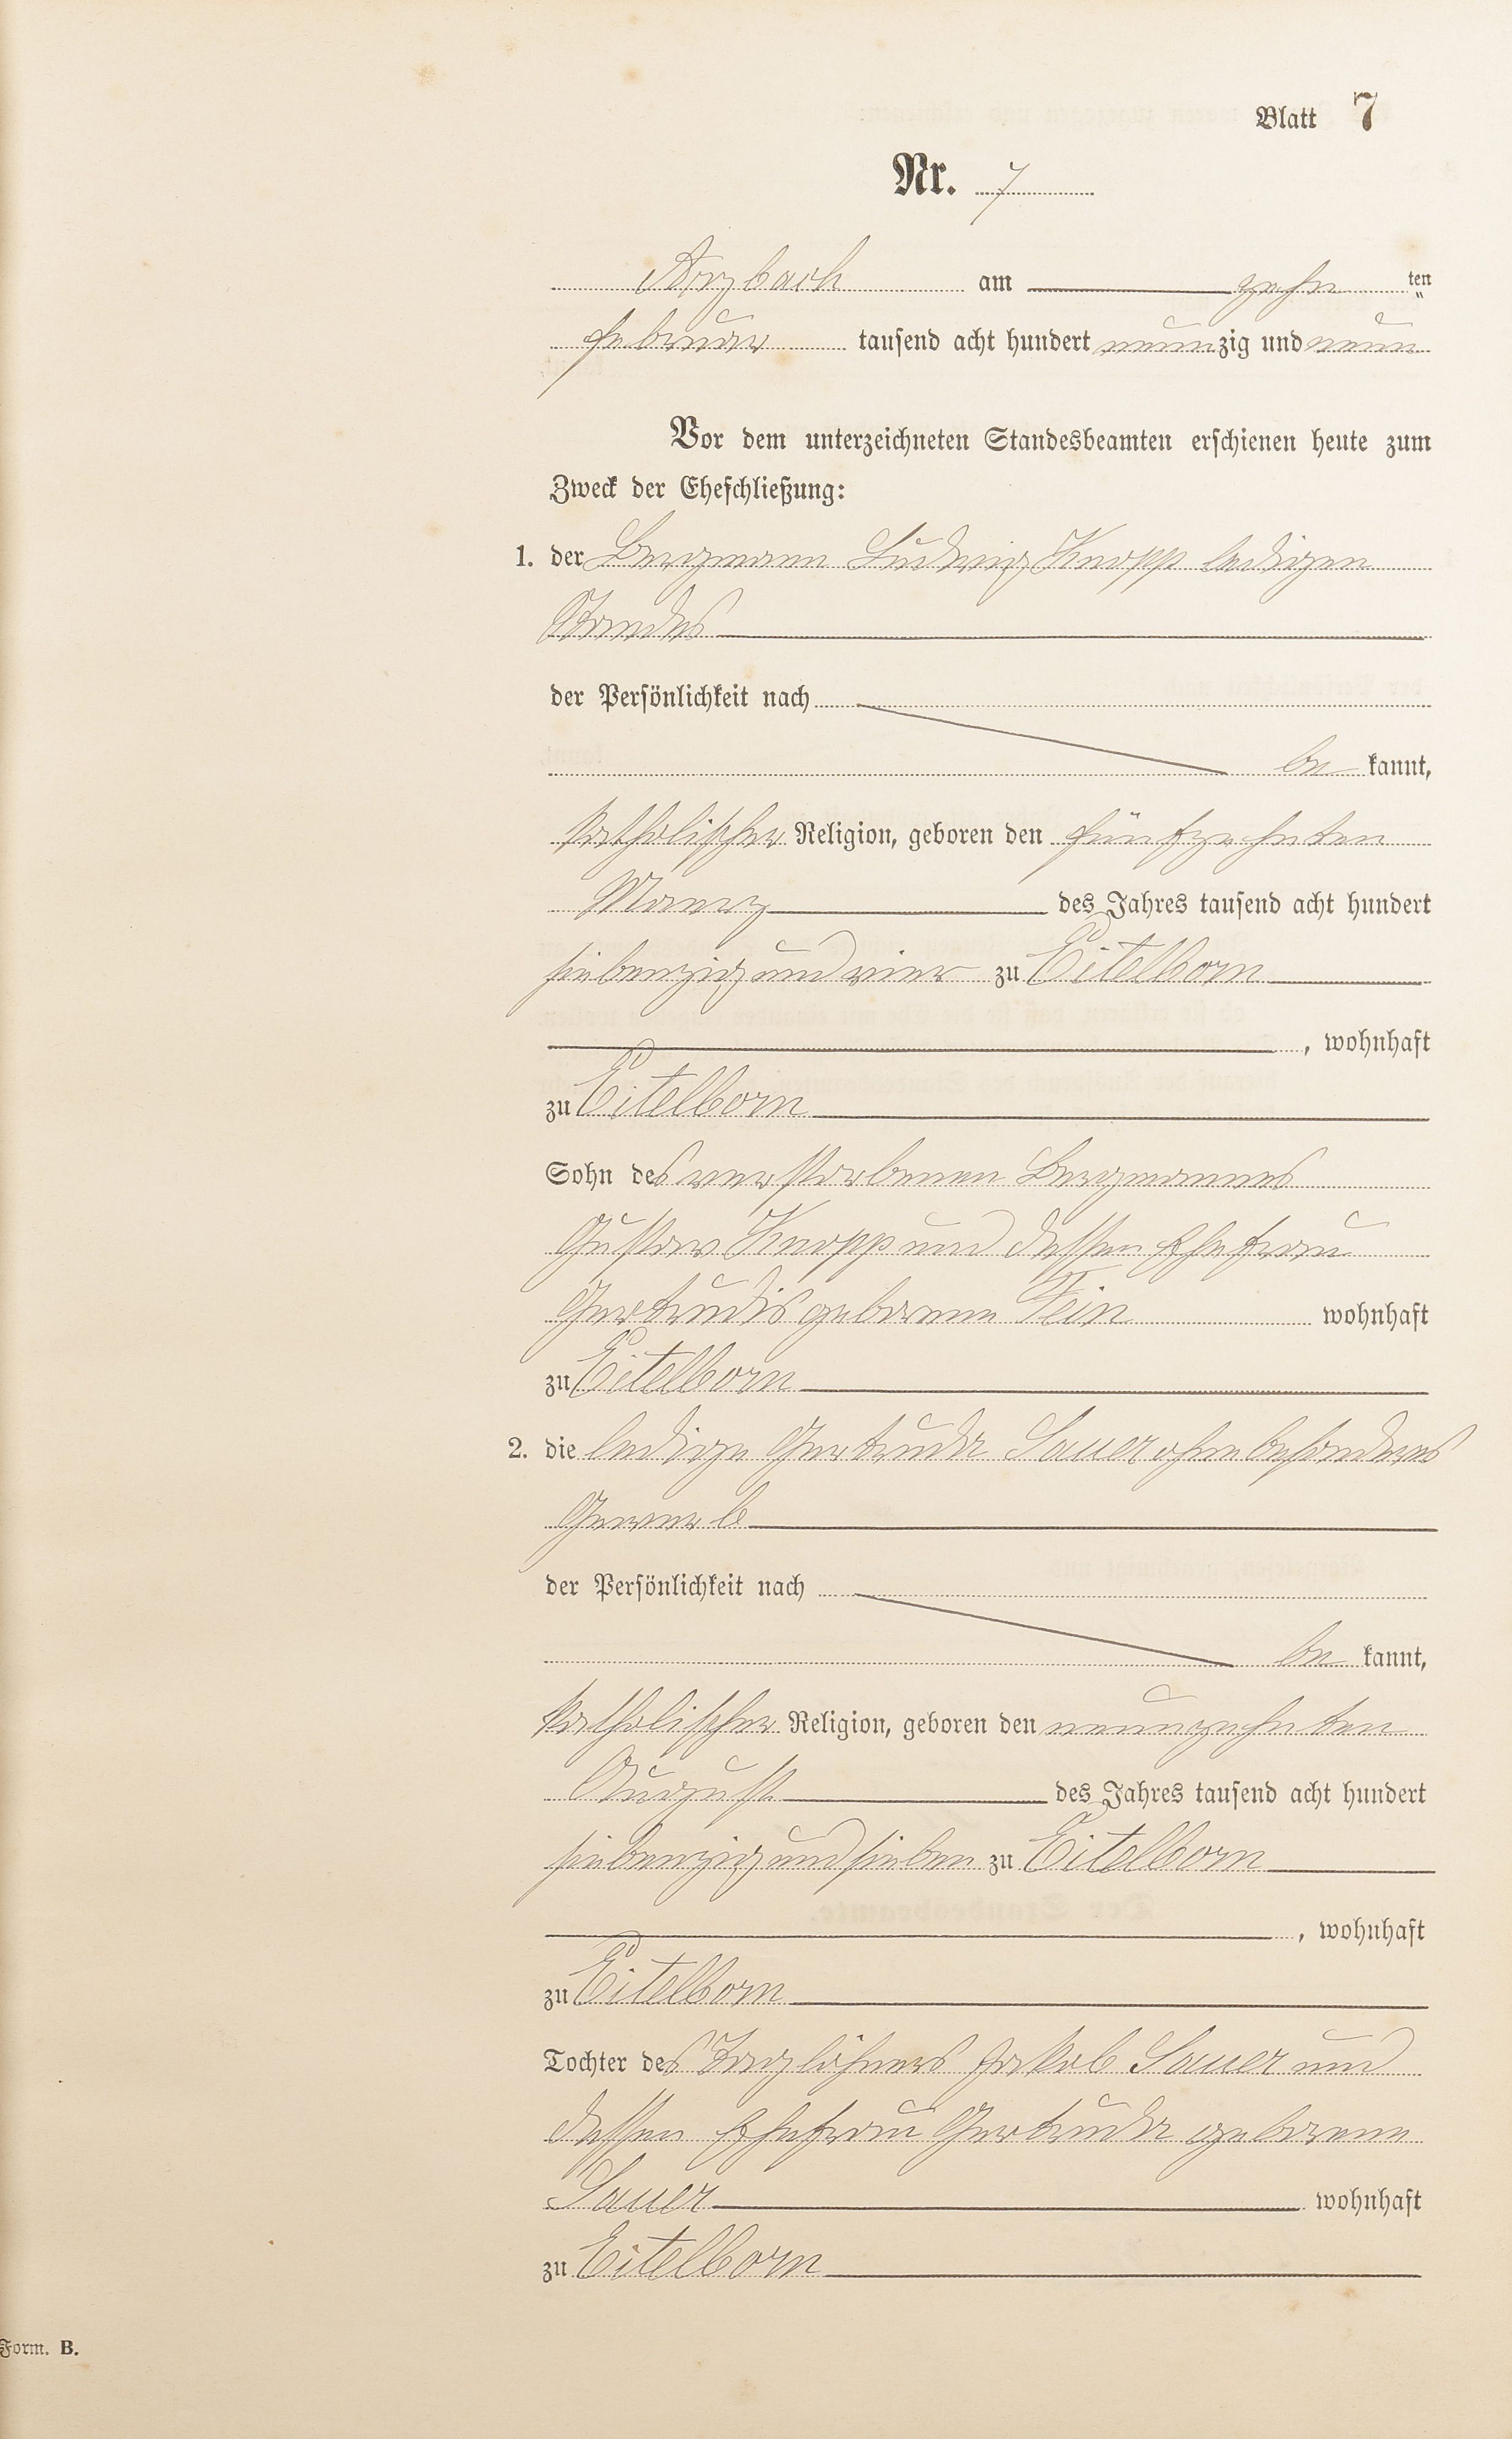 Blatt 7
Nr. 7
Arzbach am zehn ten
Februar tausend acht hundert neunzig und neun
Vor dem unterzeichneten Standesbeamten erschienen heute zum
Zweck der Eheschließung:
1. der Bergmann Ludwig Knopp ledigen
Standes
der Persönlichkeit nach
be kannt,
katholischer Religion, geboren den fünfzehnten
Maerz des Jahres tausend acht hundert
siebenzig und vier zu Eitelborn
, wohnhaft
zu Eitelborn
Sohn des verstorbenen Bergmannes
Gustav Knopp und dessen Ehefrau
Gertrudis geborene Fein wohnhaft
zu Eitelborn
2. die ledige Gertrude Sauer ohne besonderes
Gewerb
der Persönlichkeit nach
be kannt,
katholischer Religion, geboren den neunzehnten
August des Jahres tausend acht hundert
siebenzig und sieben zu Eitelborn
, wohnhaft
zu Eitelborn
Tochter des Taglöhners Jakob Sauer und
dessen Ehefrau Gertrude geborene
Sauer wohnhaft
zu Eitelborn
Form. B.